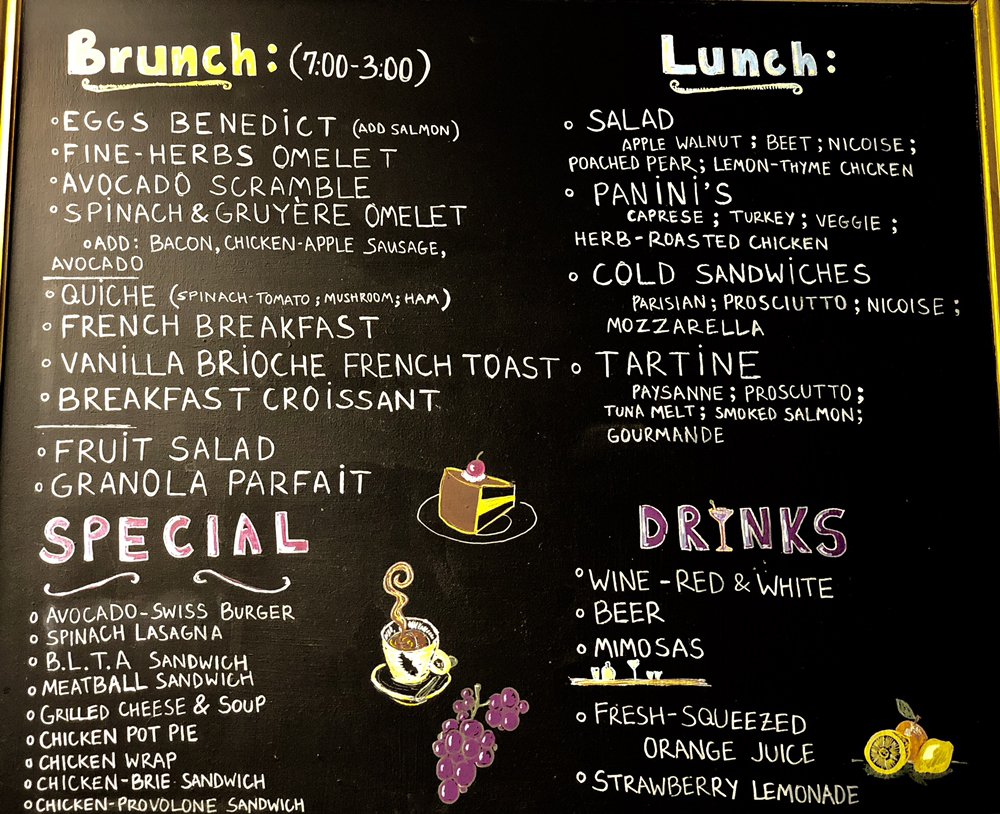 Brunch: (7:00-3:00)
EGGS BENEDICT (ADD SALMON)
FINE-HERBS OMELET
AVOCADO SCRAMBLE
SPINACH & GRUYÈRE OMELET
ADD: BACON, CHICKEN-APPLE SAUSAGE,
AVOCADO
QUICHE (SPINACH-TOMATO; MUSHROOM; HAM)
FRENCH BREAKFAST
VANILLA BRIOCHE FRENCH TOAST
BREAKFAST CROISSANT
FRUIT SALAD
GRANOLA PARFAIT
SPECIAL
AVOCADO-SWISS BURGER
SPINACH LASAGNA
B.L.T.A SANDWICH
MEATBALL SANDWICH
GRILLED CHEESE & SOUP
CHICKEN POT PIE
CHICKEN WRAP
CHICKEN-BRIE SANDWICH
CHICKEN-PROVOLONE SANDWICH
Lunch:
SALAD
APPLE WALNUT; BEET; NICOISE;
POACHED PEAR; LEMON-THYME CHICKEN
PANINI'S
CAPRESE; TURKEY; VEGGIE;
HERB-ROASTED CHICKEN
COLD SANDWICHES
PARISIAN; PROSCIUTTO; NICOISE;
MOZZARELLA
TARTINE
PAYSANNE; PROSCUTTO;
TUNA MELT; SMOKED SALMON;
GOURMANDE
DRINKS
WINE - RED & WHITE
BEER
MIMOSAS
FRESH-SQUEEZED
ORANGE JUICE
STRAWBERRY LEMONADE